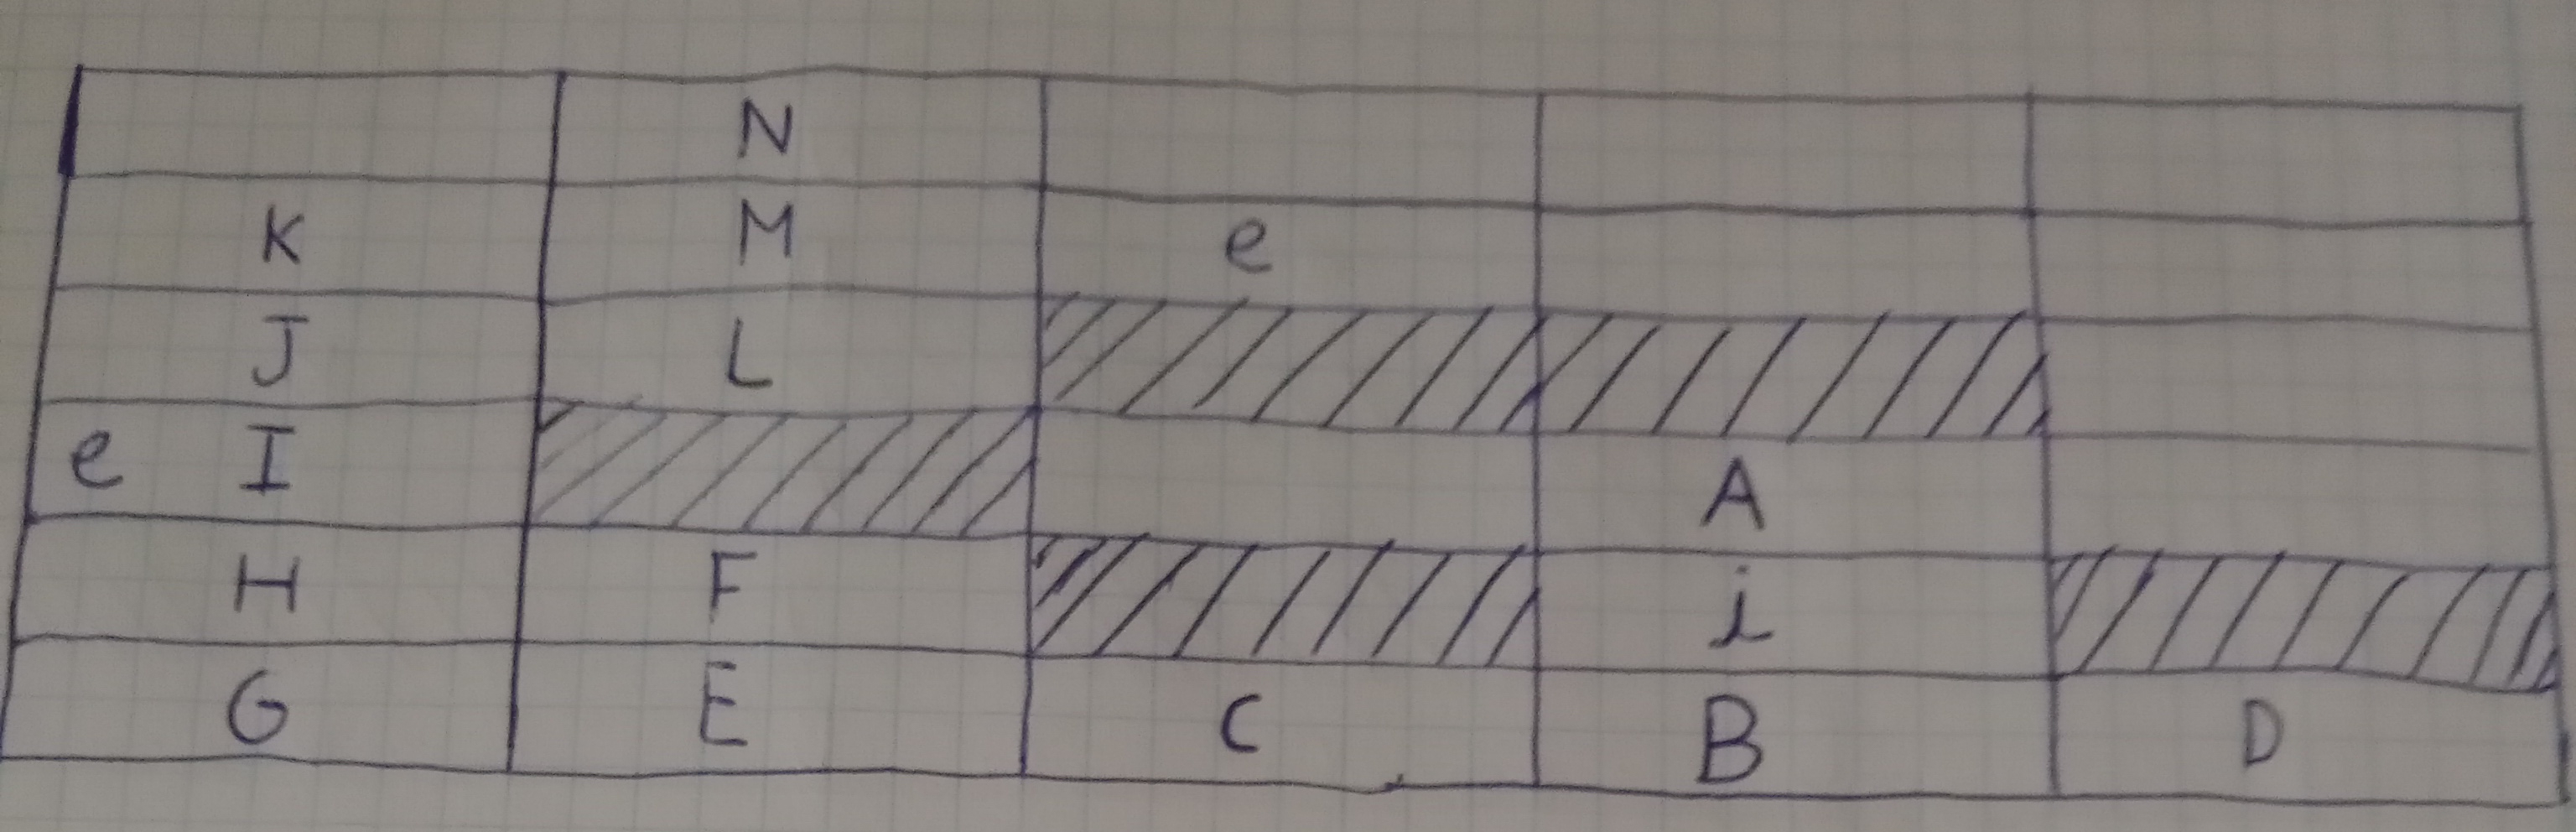 N
K M e
J L
e I A
H F i
G E C B D